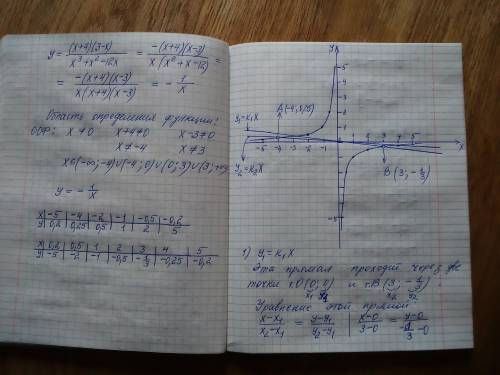 y = (x+4)(3-x) / x³+x²-12x = -(x+4)(x-3) / x(x²+x-12) =
= -(x+4)(x-3) / x(x+4)(x-3) = - 1/x
Область определения функции:
ООФ: x≠0 x+4≠0 x-3≠0
x≠-4 x≠3
x∈(-∞;-4)∪(-4;0)∪(0;3)∪(3;+∞)
y = - 1/x
x | -5 | -4 | -2 | -1 | -0,5 | -0,2
y | 0,2 | 0,25 | 0,5 | 1 | 2 | 5
x | 0,2 | 0,5 | 1 | 2 | 3 | 4 | 5
y | -5 | -2 | -1 | -0,5 | -1/3 | -0,25 | -0,2
y
5
y₁=k₁x
1
-5 -4 -3 -2 -1
x
y₂=k₂x
B (3; -1/3)
-5
1) y₁ = k₁x
Эта прямая проходит через две
точки т.О(0; 0) и т.В(3; -1/3)
x₁ y₁ x₂ y₂
Уравнение этой прямой:
x-x₁ / x₂-x₁ = y-y₁ / y₂-y₁ | x-0 / 3-0 = y-0 / -1/3-0